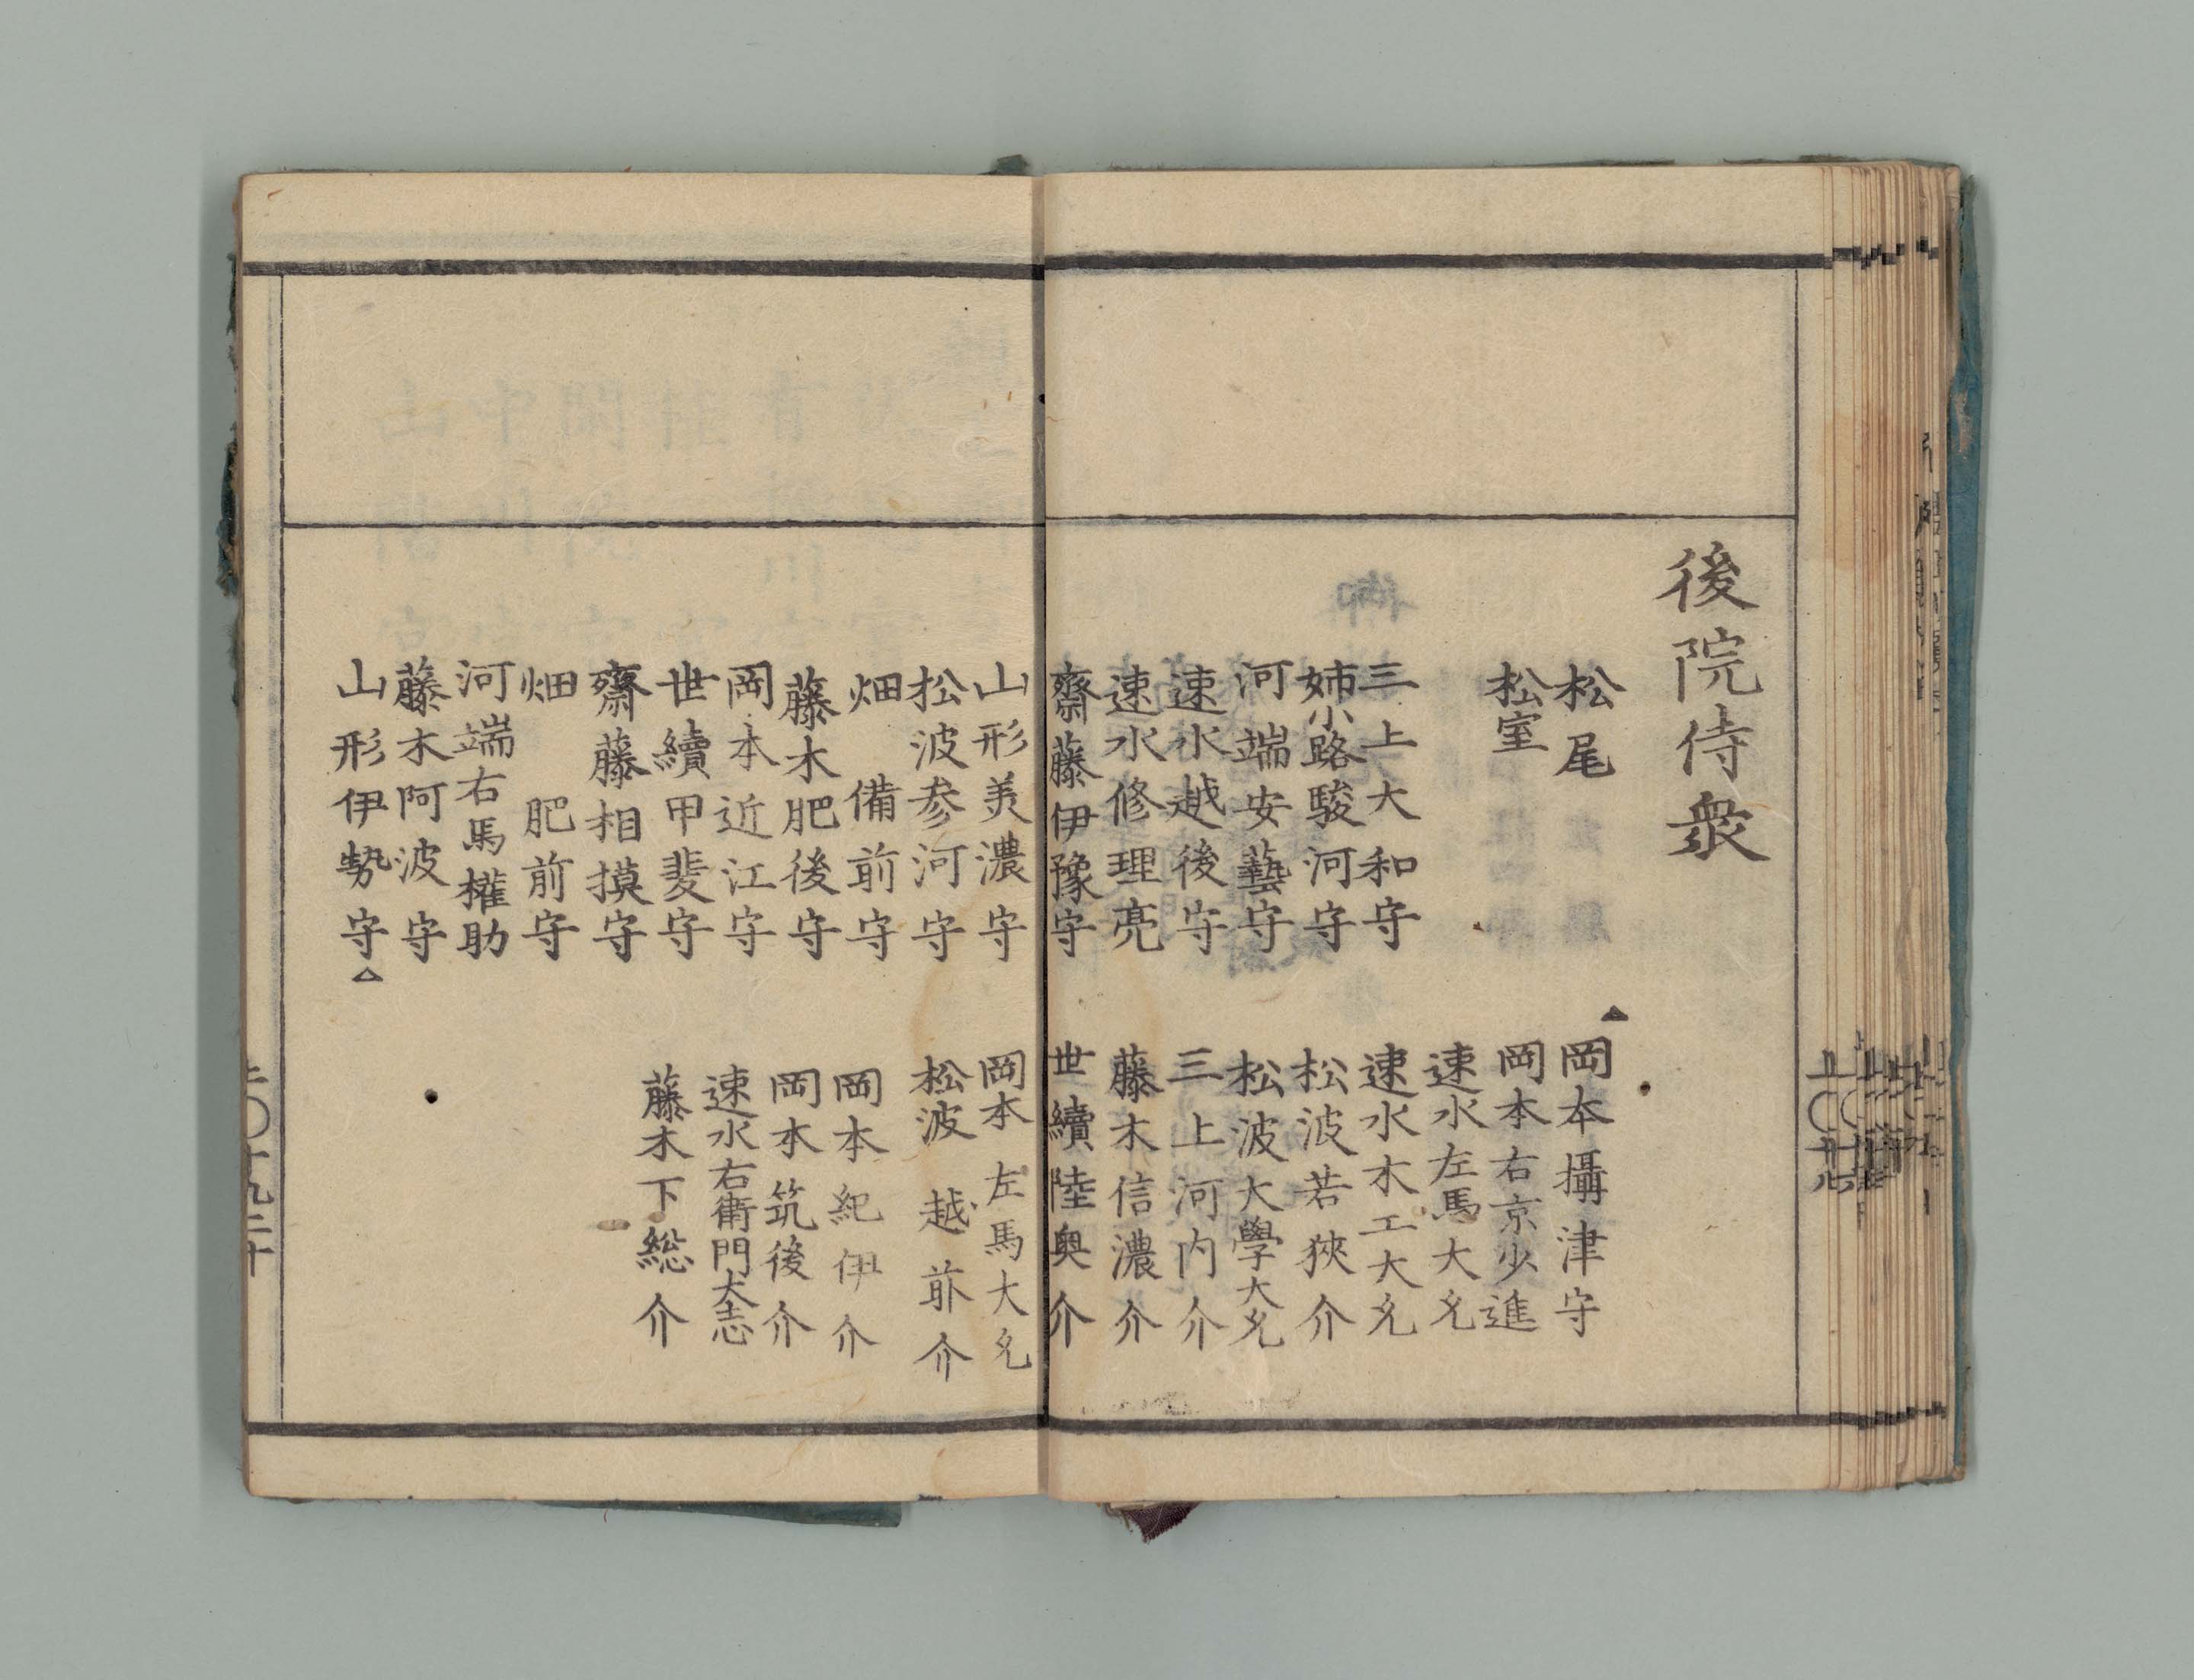 後院侍衆
松尾
松室
三上大和守
姉小路駿河守
河端安藝守
速水越後守
速水修理亮
齋藤伊豫守
山形美濃守
松波参河守
畑備前守
藤木肥後守
岡本近江守
世續甲斐守
齋藤相摸守
畑肥前守
河端右馬權助
藤木阿波守
山形伊勢守△
△岡本攝津守
岡本右京少進
速水左馬大允
速水木工大允
松波若狹介
松波大學大允
三上河内介
藤木信濃介
世續陸奥介
岡本左馬大允
松波越前介
岡本紀伊介
岡本筑後介
速水右衛門大志
藤木下総介
上〇十九二十